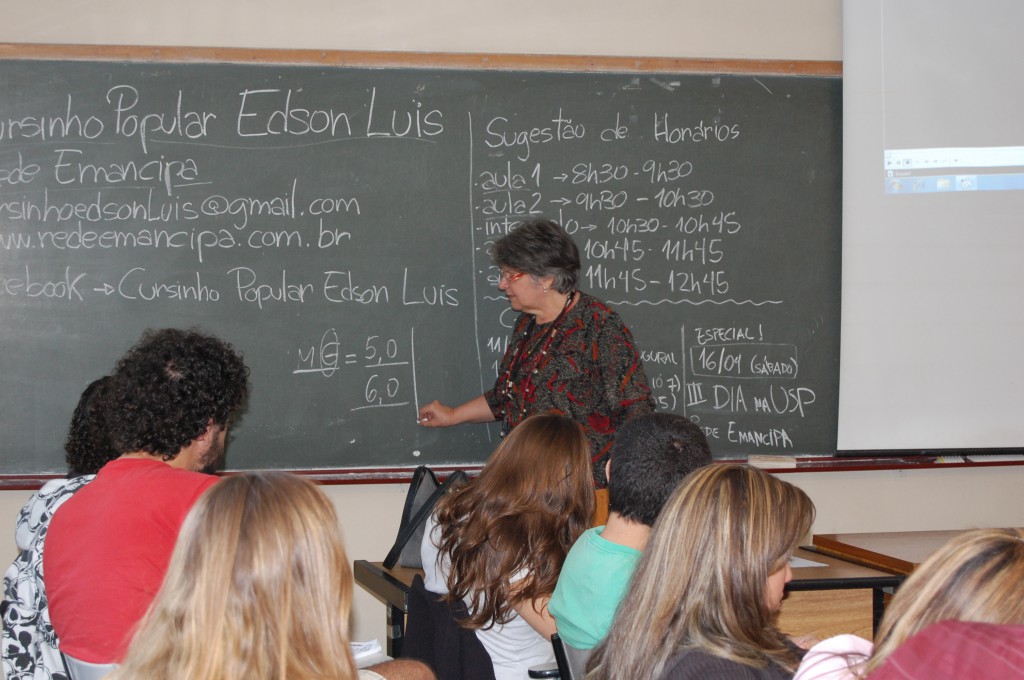 ursinho Popular Edson Luis
ede Emancipa
rsinhoedsonLuis@gmail.com
ww.redeemancipa.com.br
cebook → Cursinho Popular Edson Luis
= 5,0
6,0
Sugestão de Horários
. aula 1 → 8h30 - 9h30
. aula 2 → 9h30 - 10h30
. inte lo → 10h30 - 10h45
10h45 - 11h45
11h45 - 12h45
C
11/
GURAL
ESPECIAL!
16/04 (SÁBADO)
III DIA na USP
EMANCIPA